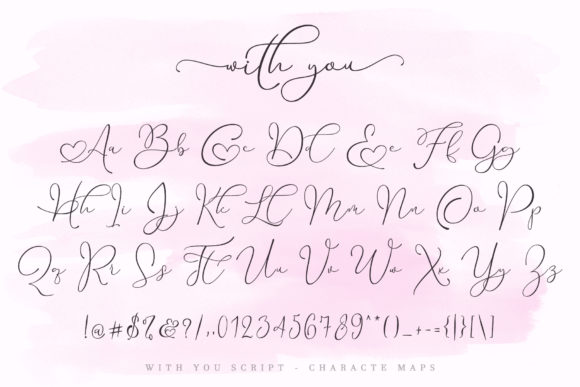 with you
Aa Bb Cc Dd Ee Ff Gg
Hh Ii Jj Kk Ll Mm Nn Oo Pp
Qq Rr Ss Tt Uu Vv Ww Xx Yy Zz
!@#$%&?/,.0123456789"*()_+-={|}[\]
WITH YOU SCRIPT - CHARACTE MAPS